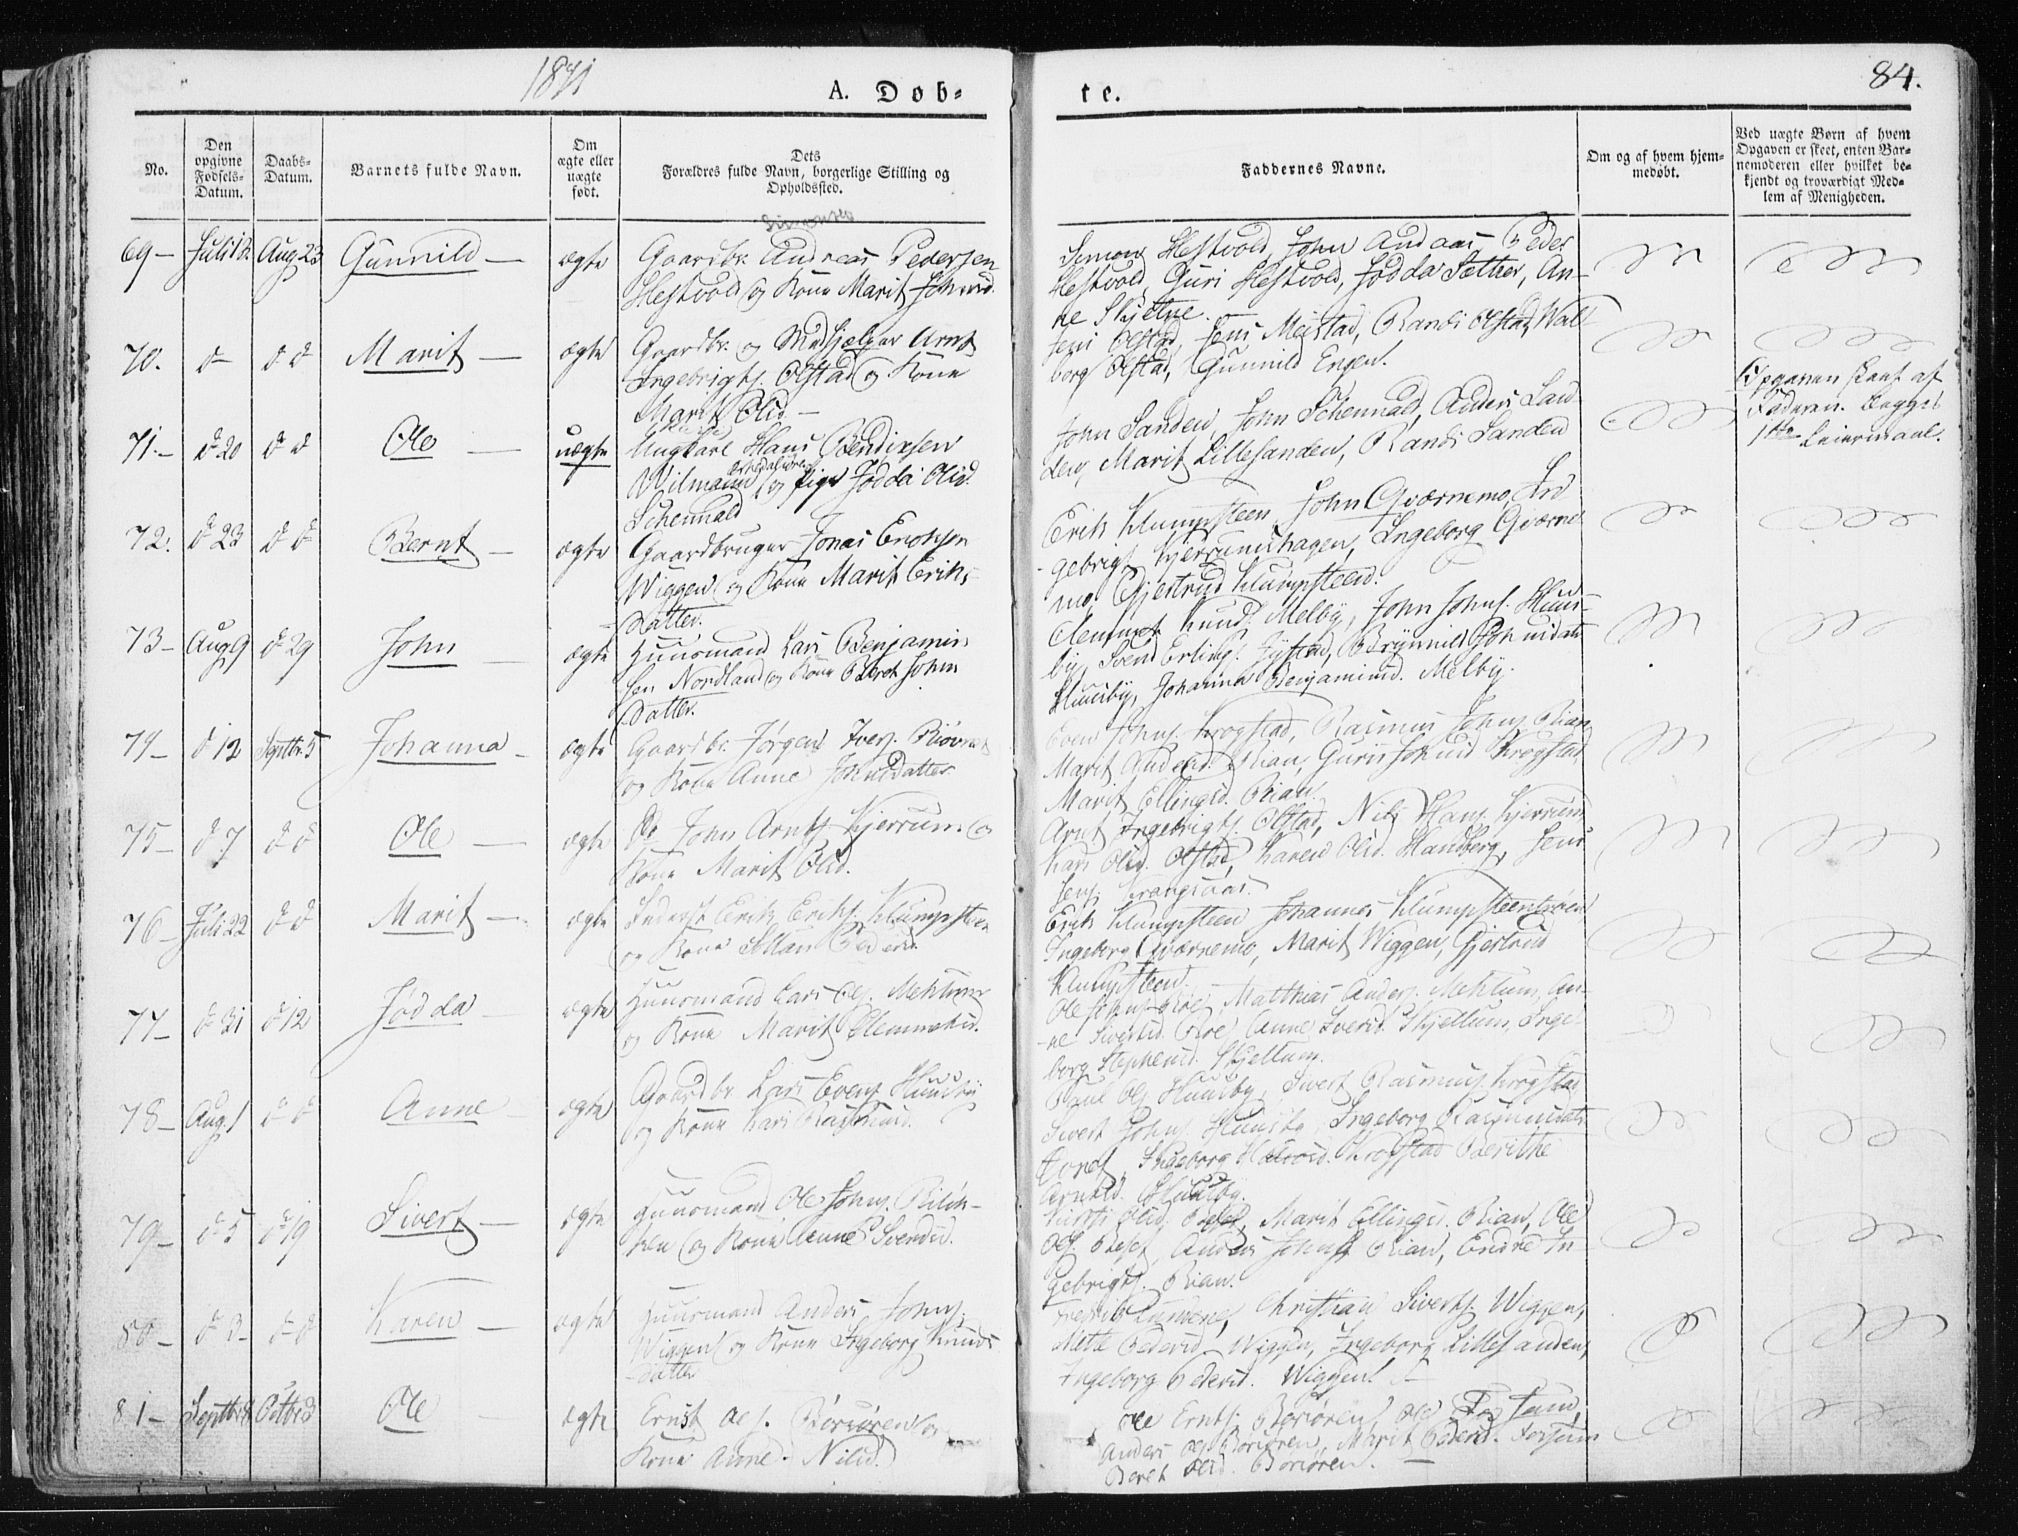 1841
A. Døb-
te.
84.
No.
Den opgivne Fødsels-Datum.
Daabs-Datum.
Barnets fulde Navn.
Om ægte eller uægte født.
Dets Forældres fulde Navn, borgerlige Stilling og Opholdssted.
Faddernes Navne.
Om og af hvem hjem-medøbt.
Ved uægte Børn af hvem Opgaven er skeet, enten Bar-nemoderen eller hvilket be-kjendt og troværdigt Med-lem af Menigheden.
69- Juli 12 Aug 23 Gunnild - ægte Gaardbr. Andreas Pedersen
Hestvold og Kone Marit Johnsd.
Simon Hestvold, John Andaas, Peder
Hestvold, Guri Hestvold, Jødda Sæther, An-
ne Skjetne.
70. d d d Marit - ægte Gaardbr. og Arnt
Ingebrigts. Olstad og Kone
Marit Olsd. -
Jens Olstad, Jens Meistad, Randi Olstad, Wal
borg Olstad, Gunnild Engen.
71.- d 20 d d Ole - uægte Ungkarl Hans Bendixsen
Wilmand og Pige Jødda Olsd.
Schennald
John Sanden, John Schennald, Anders San-
den, Marit Lillesanden, Randi Sanden
Opgaven skeet af
Faderen. Begges
1ste Leiermaal.
72. d 23 d d Bernt - ægte Gaardbruger Jonas Erichsen
Wiggen og Kone Marit Eriks-
datter.
Erik Klumpsteen, John Qværnemo, In
gebrigt Kjerrumshagen, Ingeborg Qværne
mo, Gjertrud Klumpsteen.
73- Aug 9 d 29 John - ægte Huusmand Lars Benjamin
sen Nordland og Kone Beret Johns
datter.
Clemmet Knuds. Melby, John Johns. Huus-
by, Svend Erlings. Brynnild Johnsdatt
Huusby, Johanna Benjaminsd. Melby.
74- d 12 Septbr. 5 Johanna - ægte Gaardbr. Jørgen Ivers.
og Kone Anne Johnsdatter
Even Johns. Krogstad, Rasmus Johns. Rian,
Marit Andersd. Rian, Guri Johnsd Krogstad,
Marit Ellingsd. Rian.
75- d 7 d d Ole - ægte Do John Arnts. Kjerrum og
Kone Marit Olsd.
Arnt Ingebrigts. Olstad, Nils Hans. Kjerrum
Kari Olsd. Olstad, Karen Olsd. Handberg, Jens
Jens. Krangsaas.
76- Juli 22 d d Marit - ægte Inderst Erik Eriks. Klumpsteen
og Kone Pedersd.
Erik Klumpsteen, Johannes Klumpsteentrøen
Ingeborg Qværnemo, Marit Wiggen, Gjertrud
Klumpsteen.
77- d 31 d 12 Jødda - ægte Huusmand Lars Ols. Mehlum
og Kone Marit Clemmetsd.
Ole Johns. Matthias Anders. Mehlum, An-
ne Sivertsd. Anne Iversd. Skjellum, Inge-
borg Stephensd. Skjellum.
78- Aug. 1 d d Anne - ægte Gaardbr. Lars Evens. Huusby
og Kone Kari Rasmusd.
Paul Ols. Huusby, Sivert Rasmus. Krogstad
Sivert Johns. Huusby, Ingeborg Rasmusdatt
Ingeborg Krogstad Berithe
Arntsd. Huusby.
79- d 5 d 19 Sivert - ægte Huusmand Ole Johns.
og Kone Anne Svendsd.
Kirsti Olsd. Marit Ellingsd. Rian, Ole
Ols. Anders Johns. Rian, Endre In-
gebrigts. Rian.
80- d 3- d d Karen - ægte Huusmand Anders Johns.
Wiggen og Kone Ingeborg Knuds
datter
Christian Siverts. Wiggen,
Mette Pedersd. Wiggen, Ingeborg Lillesanden,
Ingeborg Pedersd. Wiggen.
81- Septbr Octb 3 Ole - ægte Ernst Ols. Børiøren og
Kone Anne Nilsd.
Ole Ernts. Børiøren, Ole Forsum,
Anders Ols Børiøren, Marit Pedersd. Forsum
Beret Olsd. Børiøren. -